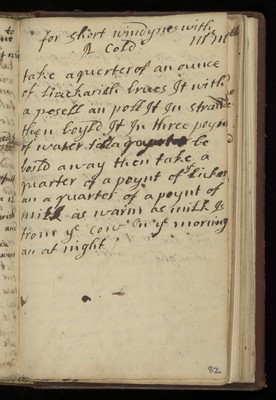 for short windynes with
A Cold
take a querter of an ounce
of liackarish brues It with
a pesell an pott It In
then boyld It In three poynt
of water till a be
boild away then take a
quarter of a poynt of ye licker
an a quarter of a poynt of
milk as warm as milk Is
from ye cow In ye morning
an at night
82